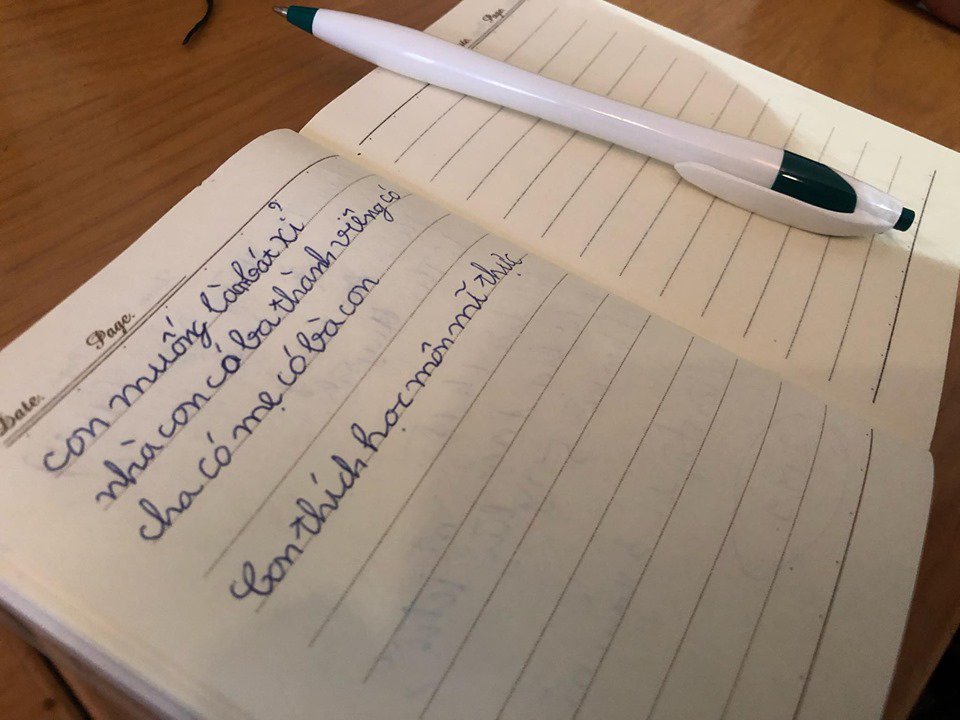 Page.
Date.
con muống làm bát xỉ?
nhà con có ba thành viêng có
cha có mẹ có bà con
Con thích học môn mĩ thục
Page.